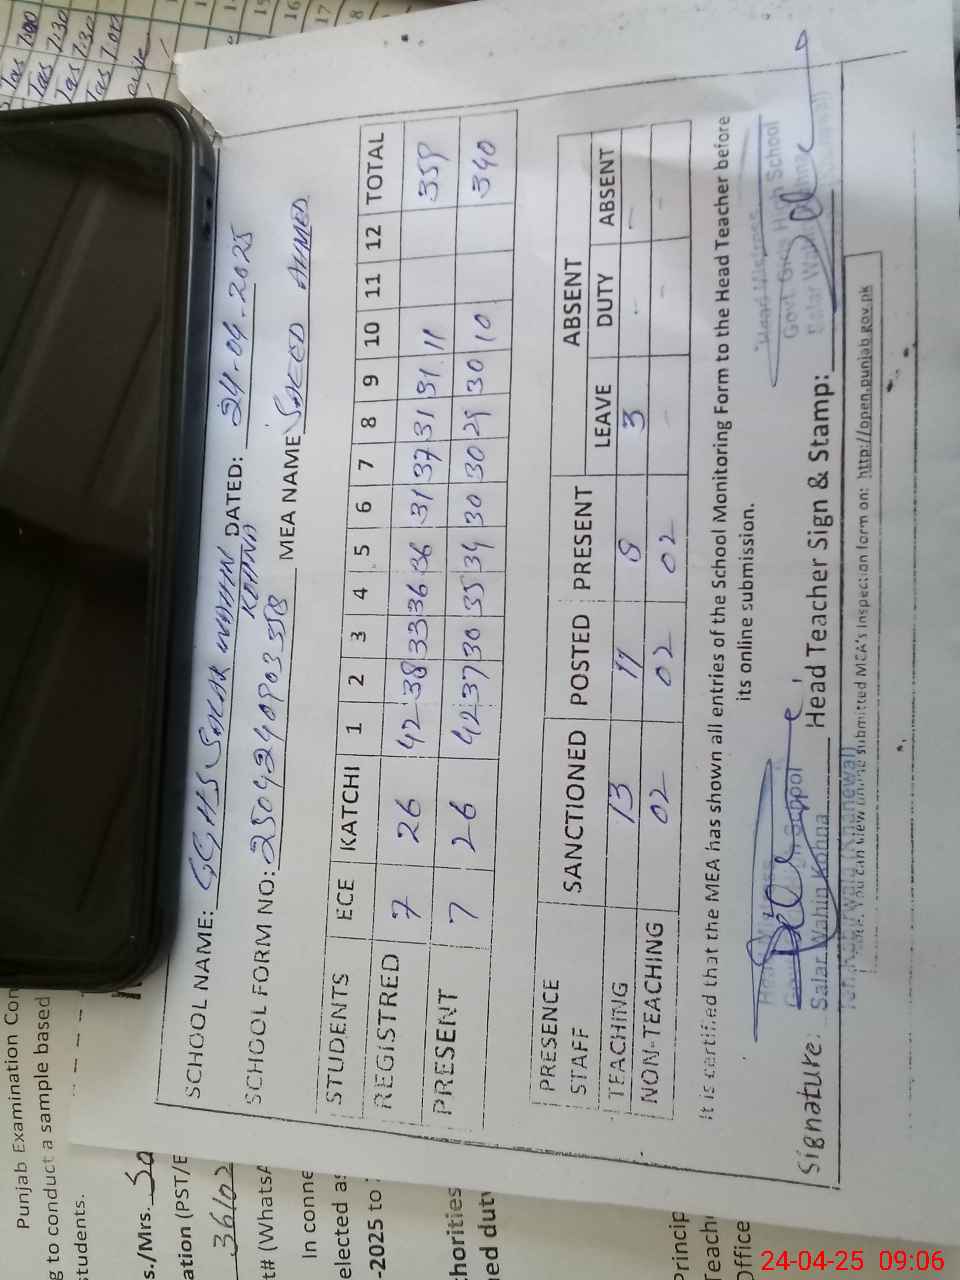 SCHOOL NAME: GGHS SALAR WAHIN KOHNA DATED: 24-04-2025
SCHOOL FORM NO: 2504240903358 MEA NAME SAEED AHMED
STUDENTS ECE KATCHI 1 2 3 4 5 6 7 8 9 10 11 12 TOTAL
REGISTRED 7 26 42 38 33 36 36 31 37 31 31 11 359
PRESENT 7 26 42 37 30 35 34 30 30 29 30 10 340
PRESENCE SANCTIONED POSTED PRESENT ABSENT
STAFF LEAVE DUTY ABSENT
TEACHING 13 11 8 3 - -
NON-TEACHING 02 02 02 - - -
It is certified that the MEA has shown all entries of the School Monitoring Form to the Head Teacher before
its online submission.
Head Mistress
Govt. Girls High School
Salar Wahin Kohna
Signature: Head Teacher Sign & Stamp:
Note: You can view online submitted MEA's inspection form on: http://open.punjab.gov.pk
Punjab Examination Com
g to conduct a sample based
students.
s./Mrs.
ation (PST/E
36102
t# (WhatsA
In conne
elected as
-2025 to
thorities
ned duty
Princip
Teach
Office
Tas 7:00
Tas 7:30
Tas 7:30
Tas 7:00
16
17
24-04-25 09:06